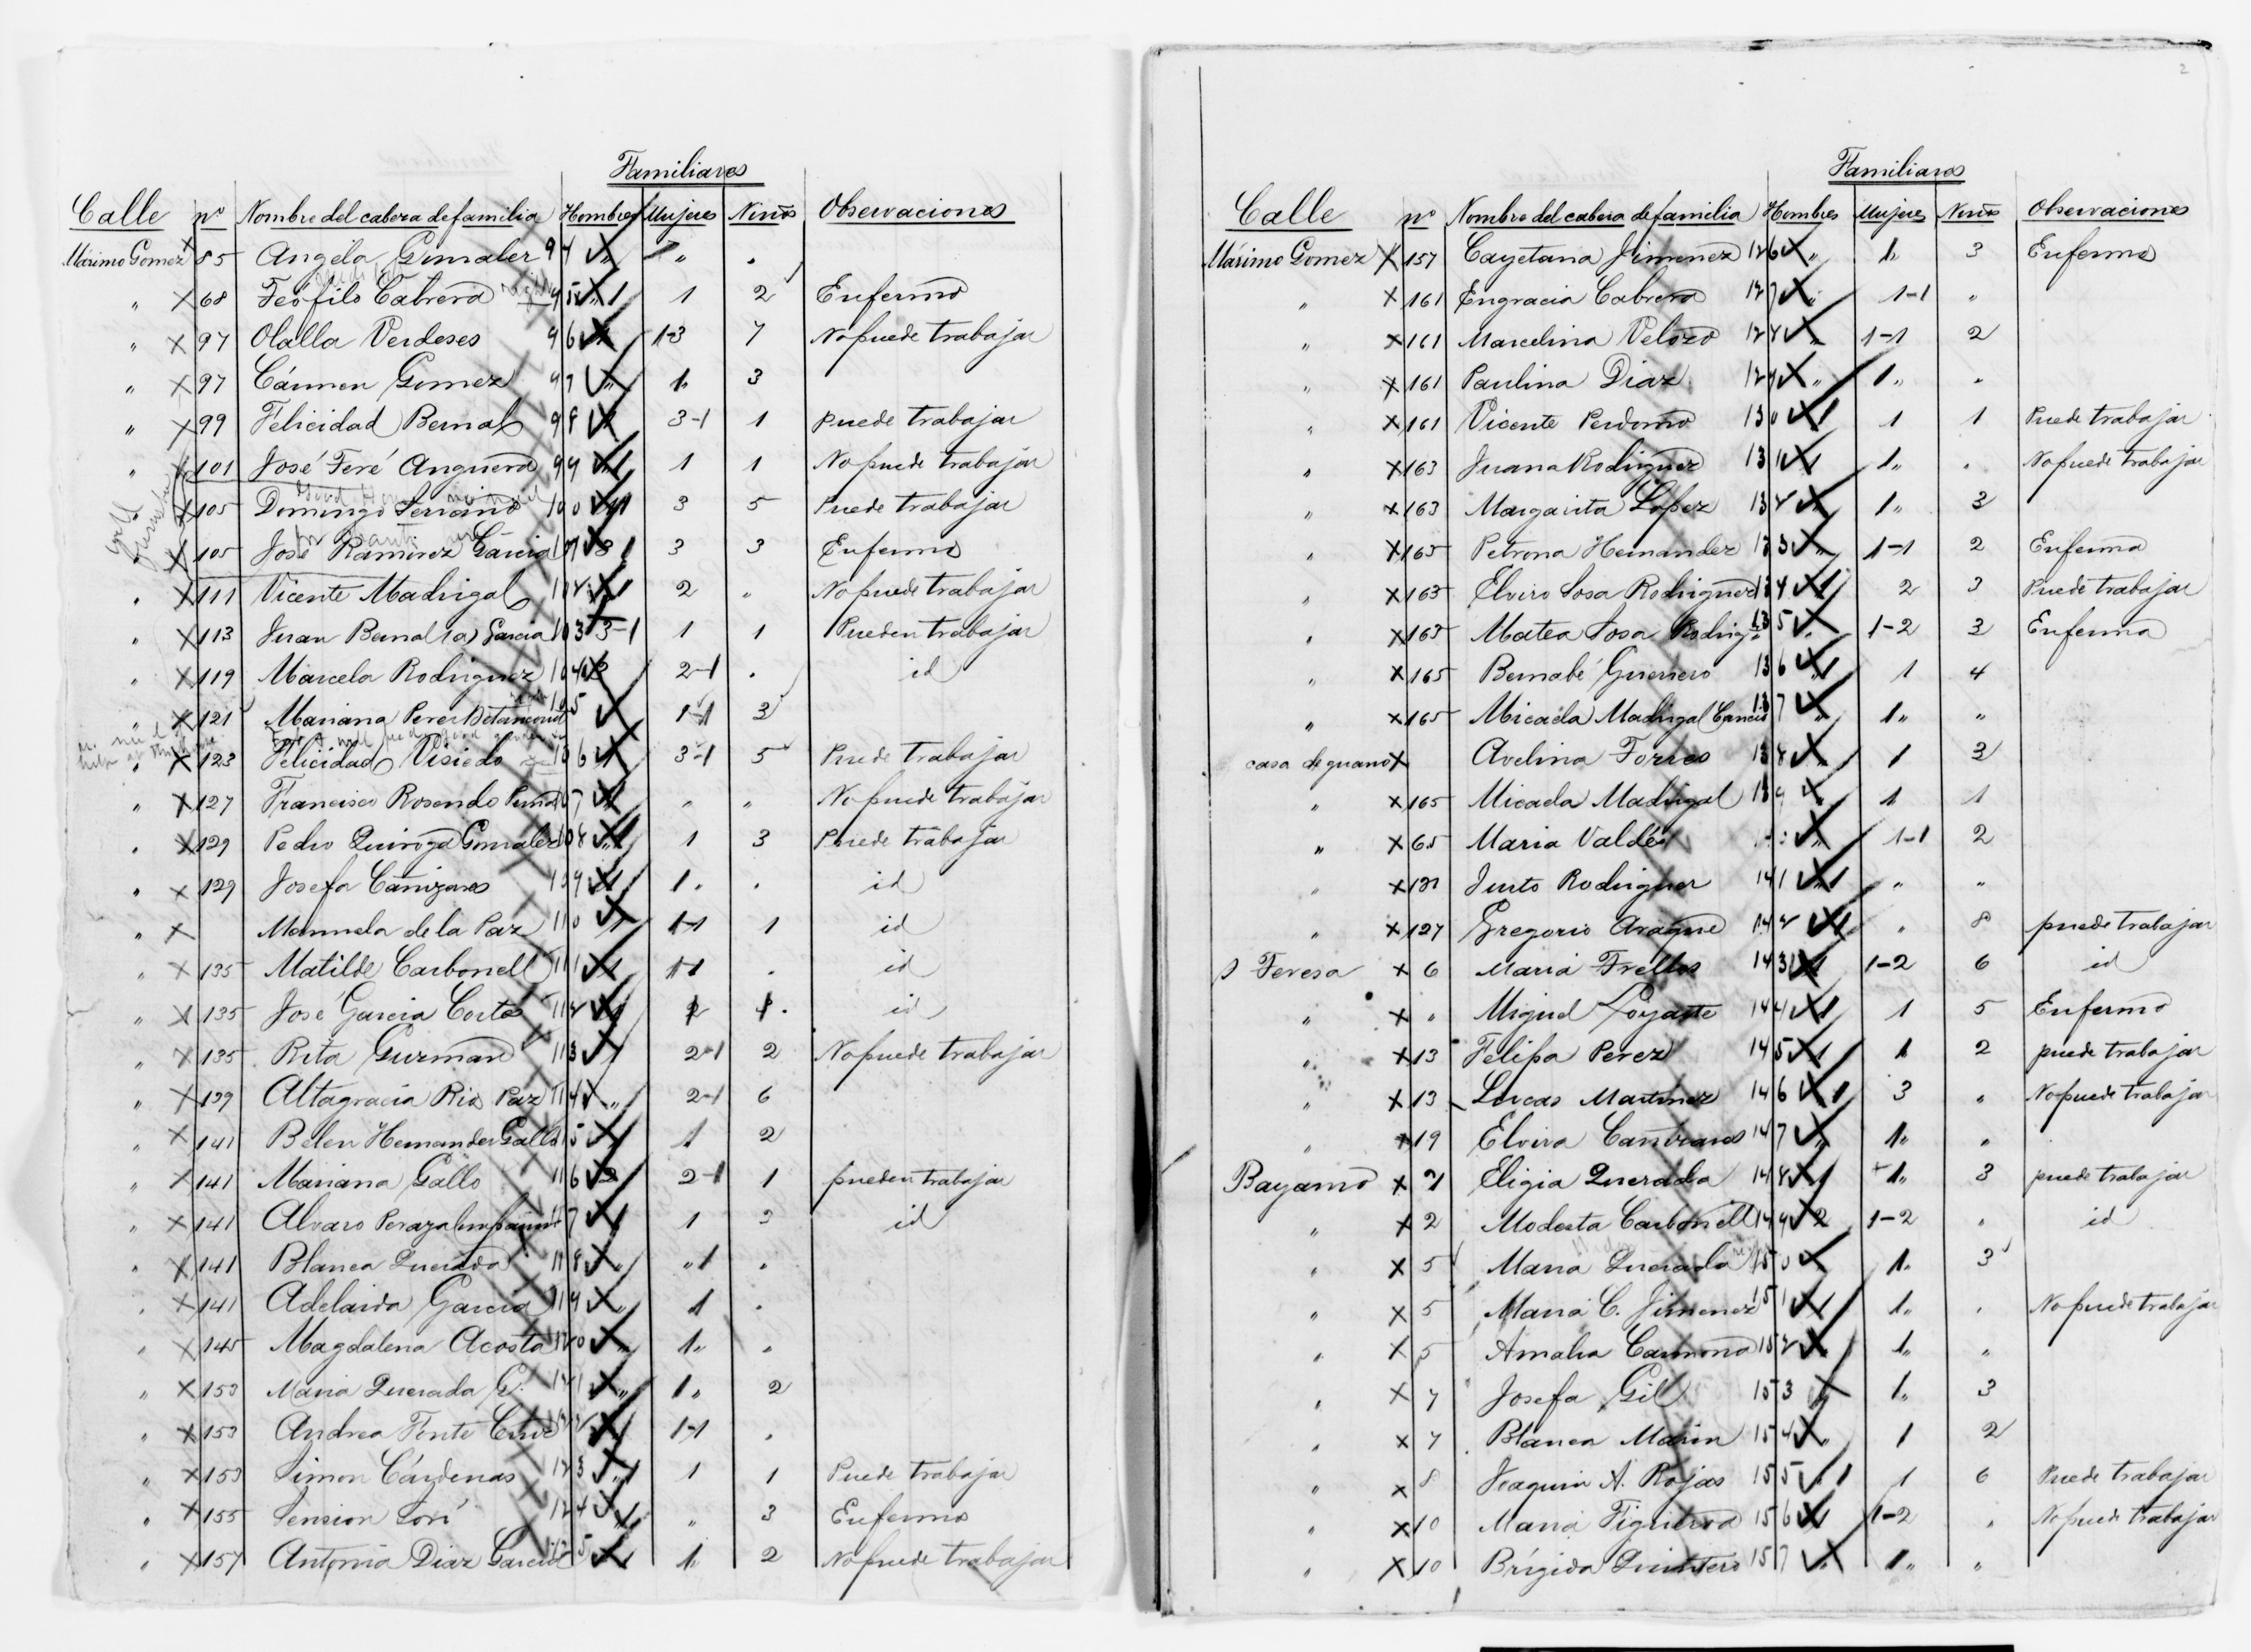 Familiares
Calle nº Nombre del cabeza de familia Hombres Mujeres Niños Observaciones
Máximo Gomez x 85 Angela Gonzalez 94 " " "
" x 68 Teófilo Cabrera 95 1 1 2 Enfermo
" x 97 Olalla Verdeses 96 1-3 7 No puede trabajar
" x 97 Cármen Gomez 97 " 1 " 3
" x 99 Felicidad Bernal 98 3-1 1 puede trabajar
" x 101 José Feré Anguera 99 1 1 1 No puede trabajar
" x 105 Domingo Serrano 100 3 5 Puede trabajar
" x 105 José Ramirez Garcia 3 3 Enfermo
" x 111 Vicente Madrigal 102 1 2 " No puede trabajar
" x 113 Juan Bernal (a) Garcia 103 3-1 1 1 Pueden trabajar
" x 119 Marcela Rodriguez 104 2-1 " id
" x 121 Mariana Perez Betancourt 105 1-1 3
" x 123 Felicidad Visiedo 106 3-1 5 Puede trabajar
" x 127 Francisco Rosendo 107 " " No puede trabajar
" x 129 Pedro Quiroga Gonzalez 108 1 1 3 Puede trabajar
" x 129 Josefa Cañizares 109 1 " " id
" x Manuela de la Paz 110 1-1 1 id
" x 135 Matilde Carbonell 111 1-1 " id
" x 135 José Garcia Cortes 112 2 " id
" x 135 Rita Guzman 113 2-1 2 No puede trabajar
" x 139 Altagracia Rios Paz 114 " 2-1 6
" x 141 Belen Hernandez Gallo 115 1 2
" x 141 Mariana Gallo 116 2 2-1 1 pueden trabajar
" x 141 Alvaro Peraza 117 1 3 id
" x 141 Blanca Quesada 118 " " 1 "
" x 141 Adelaida Garcia 119 " 1 "
" x 145 Magdalena Acosta 120 " 1 " "
" x 153 Maria Quesada G. 121 " 1 " 2
" x 153 Andrea Fonte Cruz 122 1-1 "
" x 153 Simon Cárdenas 123 1 1 1 Puede trabajar
" x 155 Sension Sorí 124 " 3 Enfermo
" x 157 Antonia Diaz Garcia 125 1 " 2 No puede trabajar
2
Familiares
Calle nº Nombre del cabeza de familia Hombres Mujeres Niños Observaciones
Máximo Gomez x 157 Cayetana Jimenez 126 " 1 " 3 Enferma
" x 161 Engracia Cabrera 127 " 1-1 "
" x 161 Marcelina Velozo 128 " 1-1 2
" x 161 Paulina Diaz 129 " 1 " "
" x 161 Vicente Perdomo 130 1 1 1 Puede trabajar
" x 163 Juana Rodriguez 131 1 " " No puede trabajar
" x 163 Margarita Lopez 132 1 " 3
" x 165 Petrona Hernandez 133 " 1-1 2 Enferma
" x 165 Elviro Sosa Rodriguez 134 1 2 3 Puede trabajar
" x 165 Matea Sosa Rodrigz 135 " 1-2 3 Enferma
" x 165 Bernabé Guerrero 136 1 1 4
" x 165 Micaela Madrigal 137 " 1 " "
casa de guano x Avelina Torres 138 " 1 3
" x 165 Micaela Madrigal 139 1 1
" x 65 Maria Valdés " 1-1 2
" x Justo Rodriguez 141 1 " "
" x 127 Gregorio Arague 142 1 " 8 puede trabajar
S Teresa x 6 Maria Trelles 143 1 1-2 6 id
" x " Miguel Loyarte 144 1 1 5 Enfermo
" x 13 Felipa Perez 145 1 1 2 puede trabajar
" x 13 Lucas Martinez 146 1 3 " No puede trabajar
" x 19 Elvira Cañizares 147 " 1 " "
Bayamo x 2 Eligia Quesada 148 1 1 " 3 puede trabajar
" x 2 Modesta Carbonell 149 2 1-2 " id
" x 5 Maria Quesada 150 1 " 3
" x 5 Maria C. Jimenez 151 1 1 " " No puede trabajar
" x 5 Amalia Carmona 152 1 " "
" x 7 Josefa Gil 153 1 " 3
" x 7 Blanca Marin 154 " 1 2
" x 8 Joaquin A. Rojas 155 1 1 6 Puede trabajar
" x 10 Maria Figueroa 156 1-2 " No puede trabajar
" x 10 Brígida Quintero 157 " 1 " "